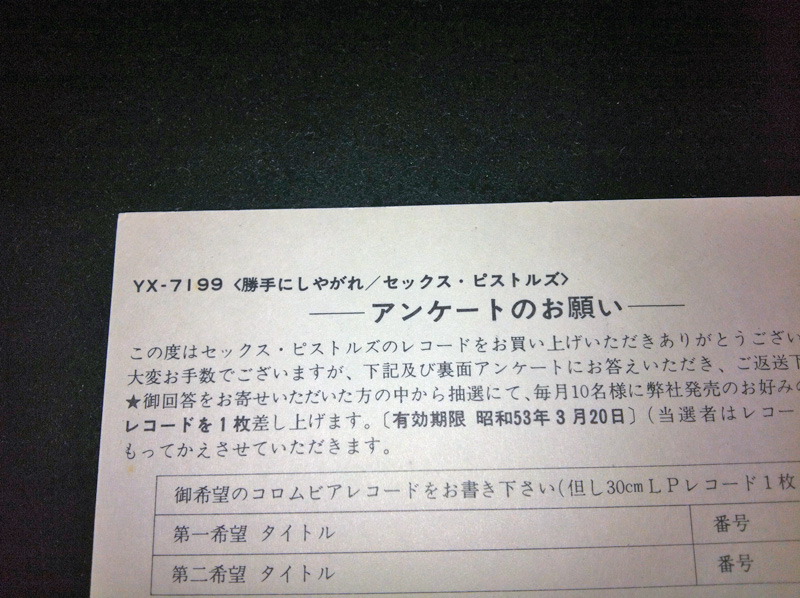 YX-7199〈勝手にしやがれ／セックス・ピストルズ〉
アンケートのお願い
この度はセックス・ピストルズのレコードをお買い上げいただきありがとうござい
大変お手数でございますが、下記及び裏面アンケートにお答えいただき、ご返送下
★御回答をお寄せいただいた方の中から抽選にて、毎月10名様に弊社発売のお好みの
レコードを1枚差し上げます。〔有効期限 昭和53年3月20日〕(当選者はレコー
もってかえさせていただきます。
御希望のコロムビアレコードをお書き下さい(但し30cmLPレコード1枚
第一希望 タイトル 番号
第二希望 タイトル 番号